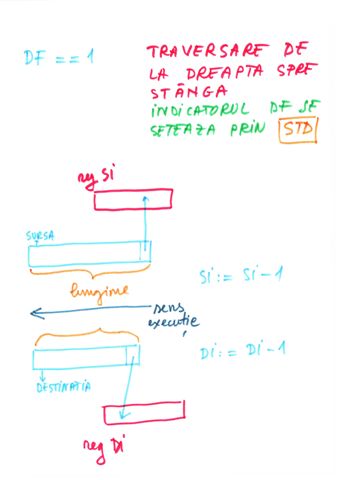 DF == 1
TRAVERSARE DE
LA DREAPTA SPRE
STÂNGA
INDICATORUL DF SE
SETEAZA PRIN STD
reg SI
SURSA
lungime
SI := SI - 1
sens
execuție
DI := DI - 1
DESTINATIA
reg DI